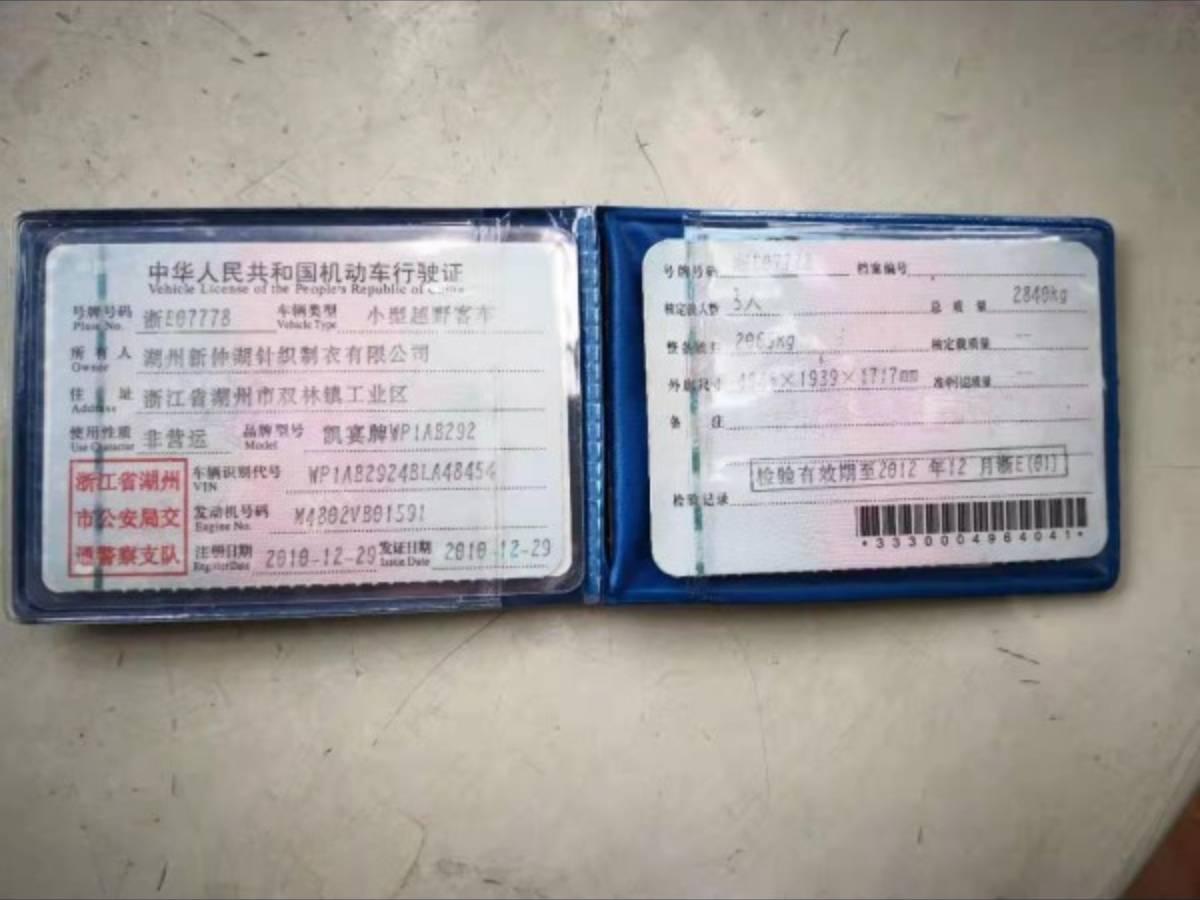 中华人民共和国机动车行驶证
Vehicle License of the People's Republic of China
号牌号码 浙E07778 车辆类型 小型越野客车
Plate No. Vehicle Type
所有人 湖州新仲湖针织制衣有限公司
Owner
住址 浙江省湖州市双林镇工业区
Address
使用性质 非营运 品牌型号 凯宴牌WP1AB292
Use Character Model
浙江省湖州
市公安局交
通警察支队
车辆识别代号 WP1AB2924BLA48454
VIN
发动机号码 M4802VB01591
Engine No.
注册日期 2010-12-29 发证日期 2010-12-29
Register Date Issue Date
号牌号码 档案编号
核定载人数 5人 总质量 2840kg
整备质量 核定载质量
外廓尺寸 ×1939×1717mm 准牵引总质量
备注
检验有效期至2012年12月浙E(01)
检验记录
*3330004964041*